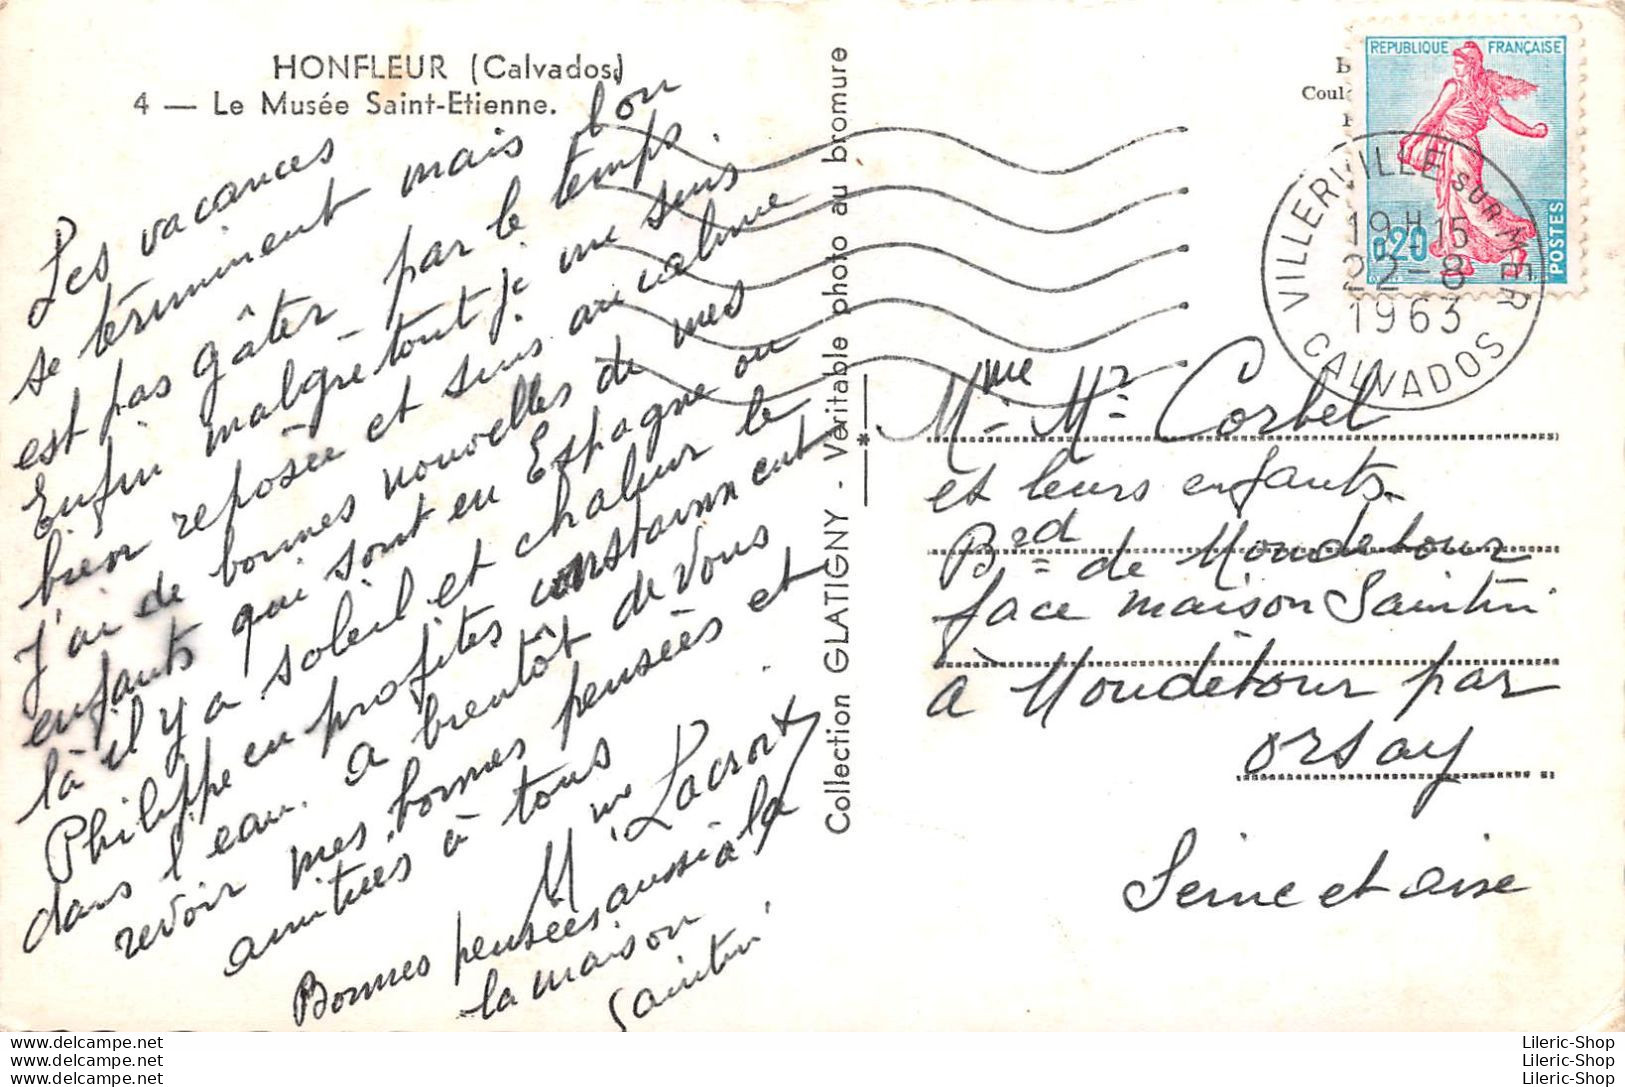 HONFLEUR (Calvados)
4 — Le Musée Saint-Etienne.
Les vacances
se terminent mais l'on
est pas gâter par le temps
Enfin malgré tout je me suis
bien reposée et suis au calme
J'ai de bonnes nouvelles de mes
enfants qui sont en Espagne ou
là il y a soleil et chaleur le
Philippe en profites constamment
dans l'eau. a bientôt de vous
revoir mes bonnes pensées et
amitiés à tous
Mme Lacroix
Bonnes pensées aussi à la
la maison
Saintin
Collection GLATIGNY - Véritable photo au bromure
Coul
REPUBLIQUE FRANÇAISE
0,20
POSTES
VILLERVILLE SUR MER
19H15
22-8
1963
CALVADOS
Mme Mr Corbel
et leurs enfants.
Brd de Moudetour
face maison Saintin
à Moudétour par
orsay
Seine et oise
Lileric-Shop
Lileric-Shop
Lileric-Shop
Lileric-Shop
Lileric-Shop
Lileric-Shop
www.delcampe.net
www.delcampe.net
www.delcampe.net